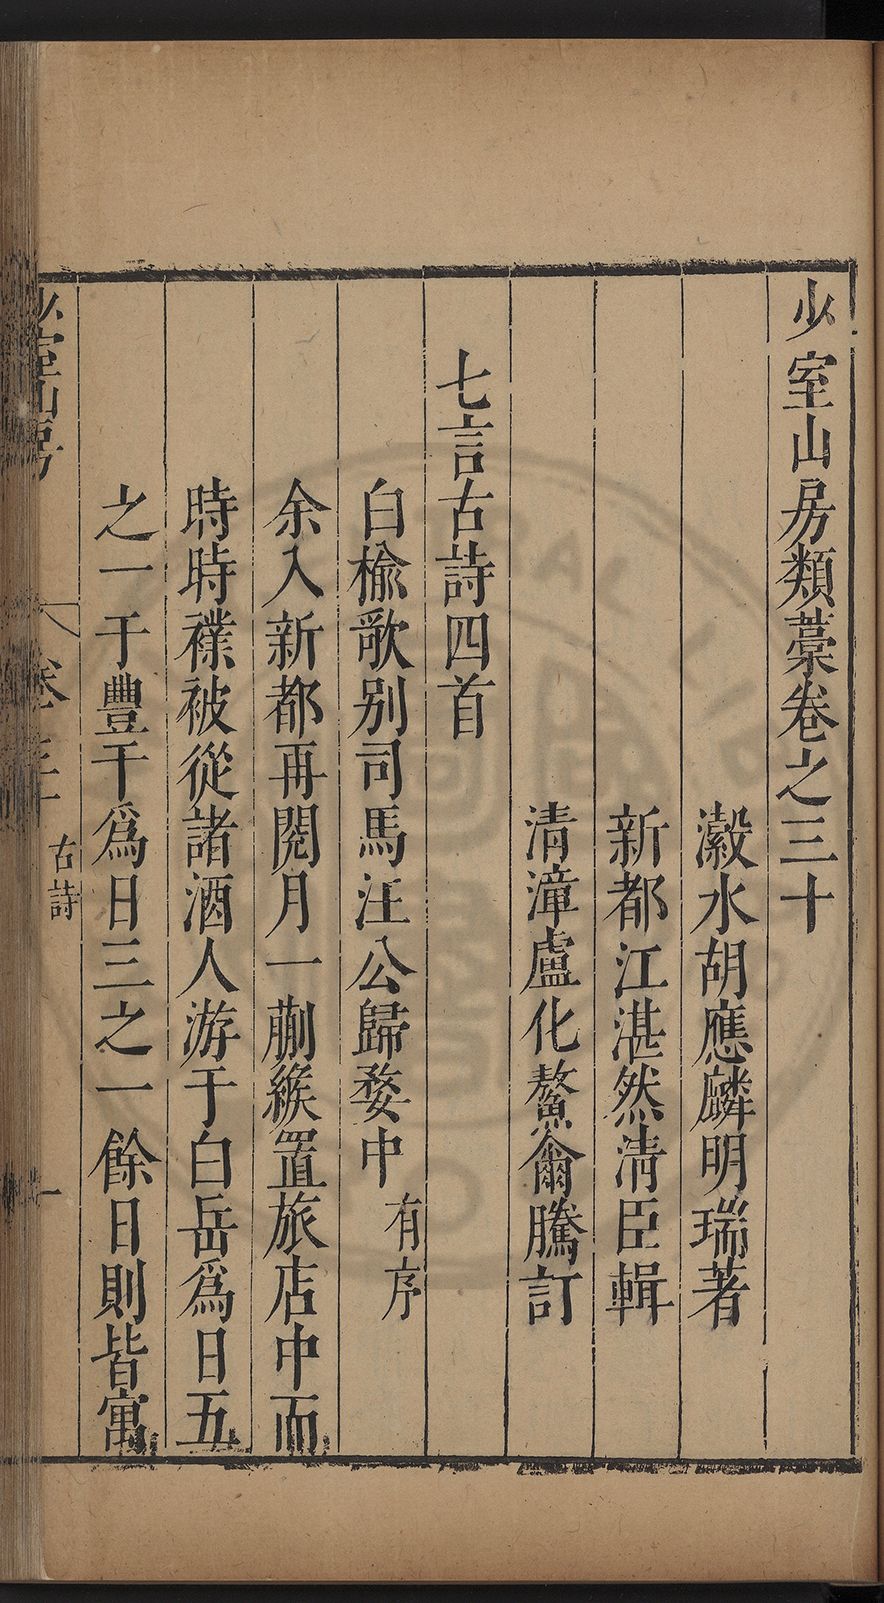 少室山房類藁卷之三十
瀫水胡應麟明瑞著
新都江湛然清臣輯
清漳盧化鰲爾騰訂
七言古詩四首
白榆歌别司馬汪公歸婺中 有序
余入新都再閱月一蒯緱置旅店中而
時時襆被從諸酒人游于白岳爲日五
之一于豐干爲日三之一餘日則皆寓
少室山房 卷三十 古詩 一